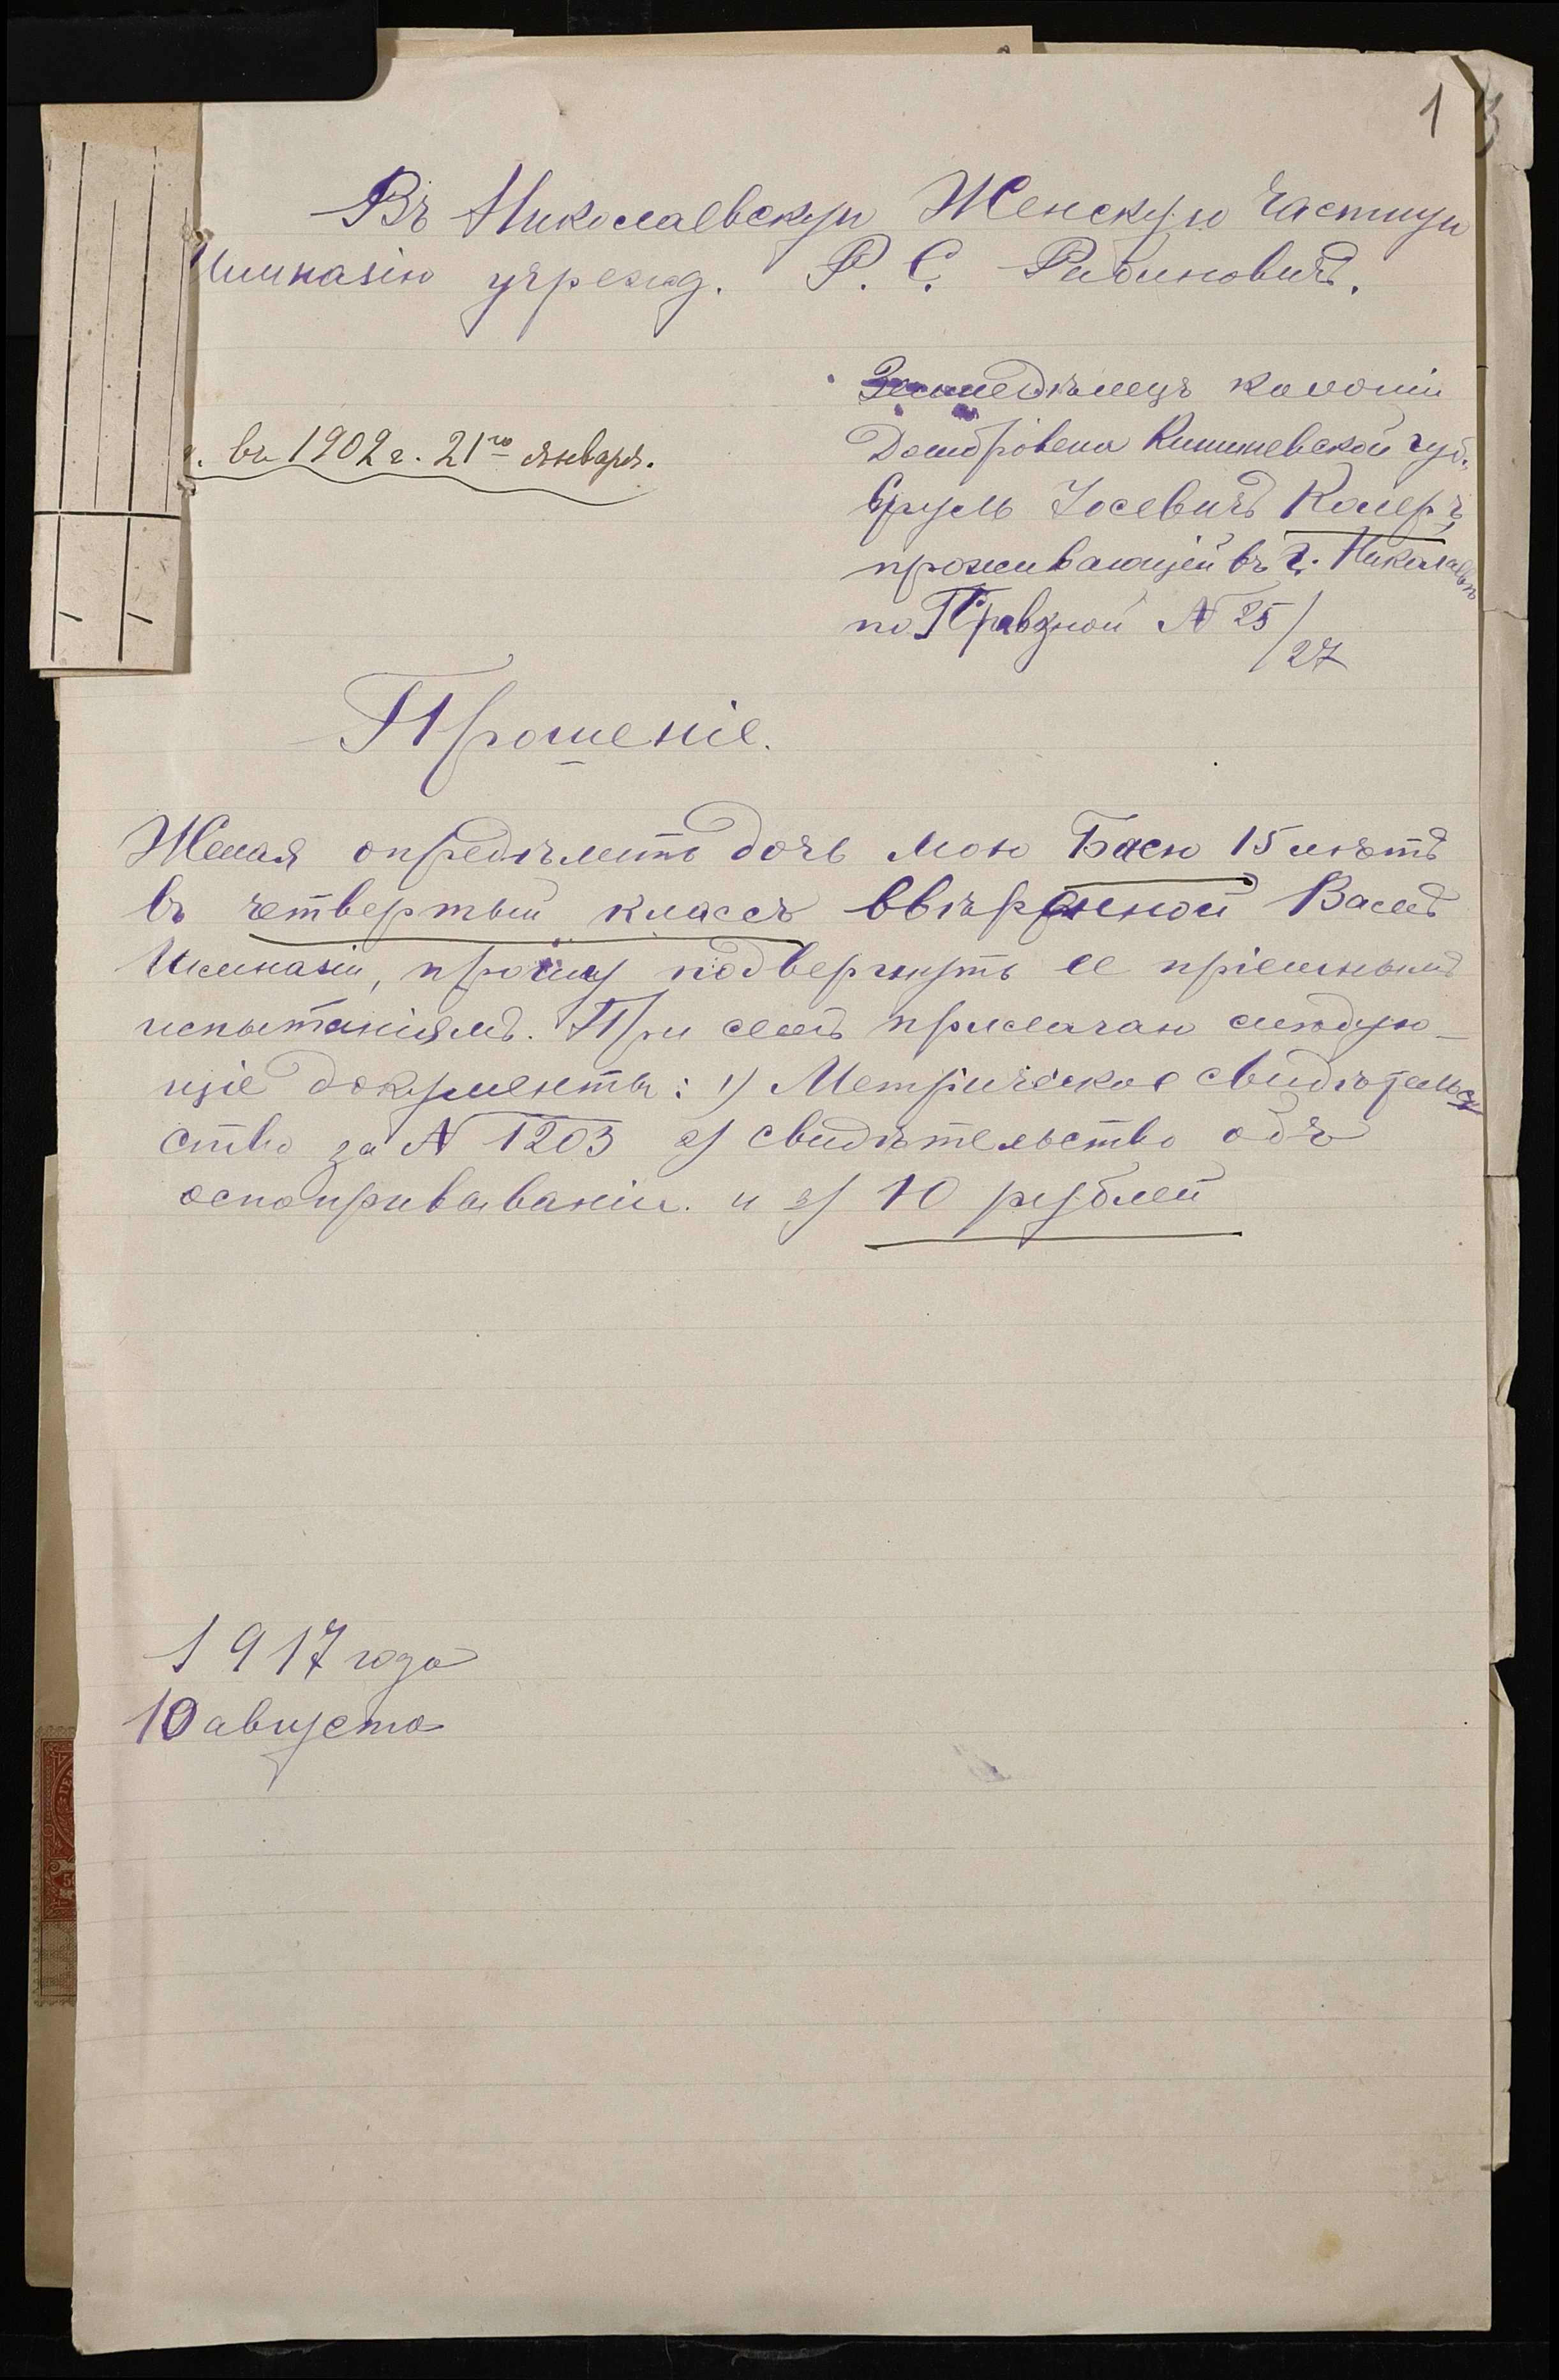 1
Въ Николаевскую Женскую частную
Гимназію учрежд. Р. С. Рабиновичъ.
Земледѣлецъ колоніи
Домбровена Кишиневской губ.
Сруль Іосевичъ Колеръ
проживающій въ г. Николаевѣ
по Правдной № 25/27
р. въ 1902 г. 21го января.
Прошеніе.
Желая опредѣлить дочь мою Басю 15 лѣтъ
въ четвертый классъ ввѣренной Вамъ
Гимназіи, прошу подвергнуть ее пріемнымъ
испытаніямъ. При семъ прилагаю слѣдую-
щіе документы: 1) Метрическое свидѣтель-
ство за № 1203 2) свидѣтельство объ
оспопрививаніи. и 3) 10 рублей
1917 года
10 августа